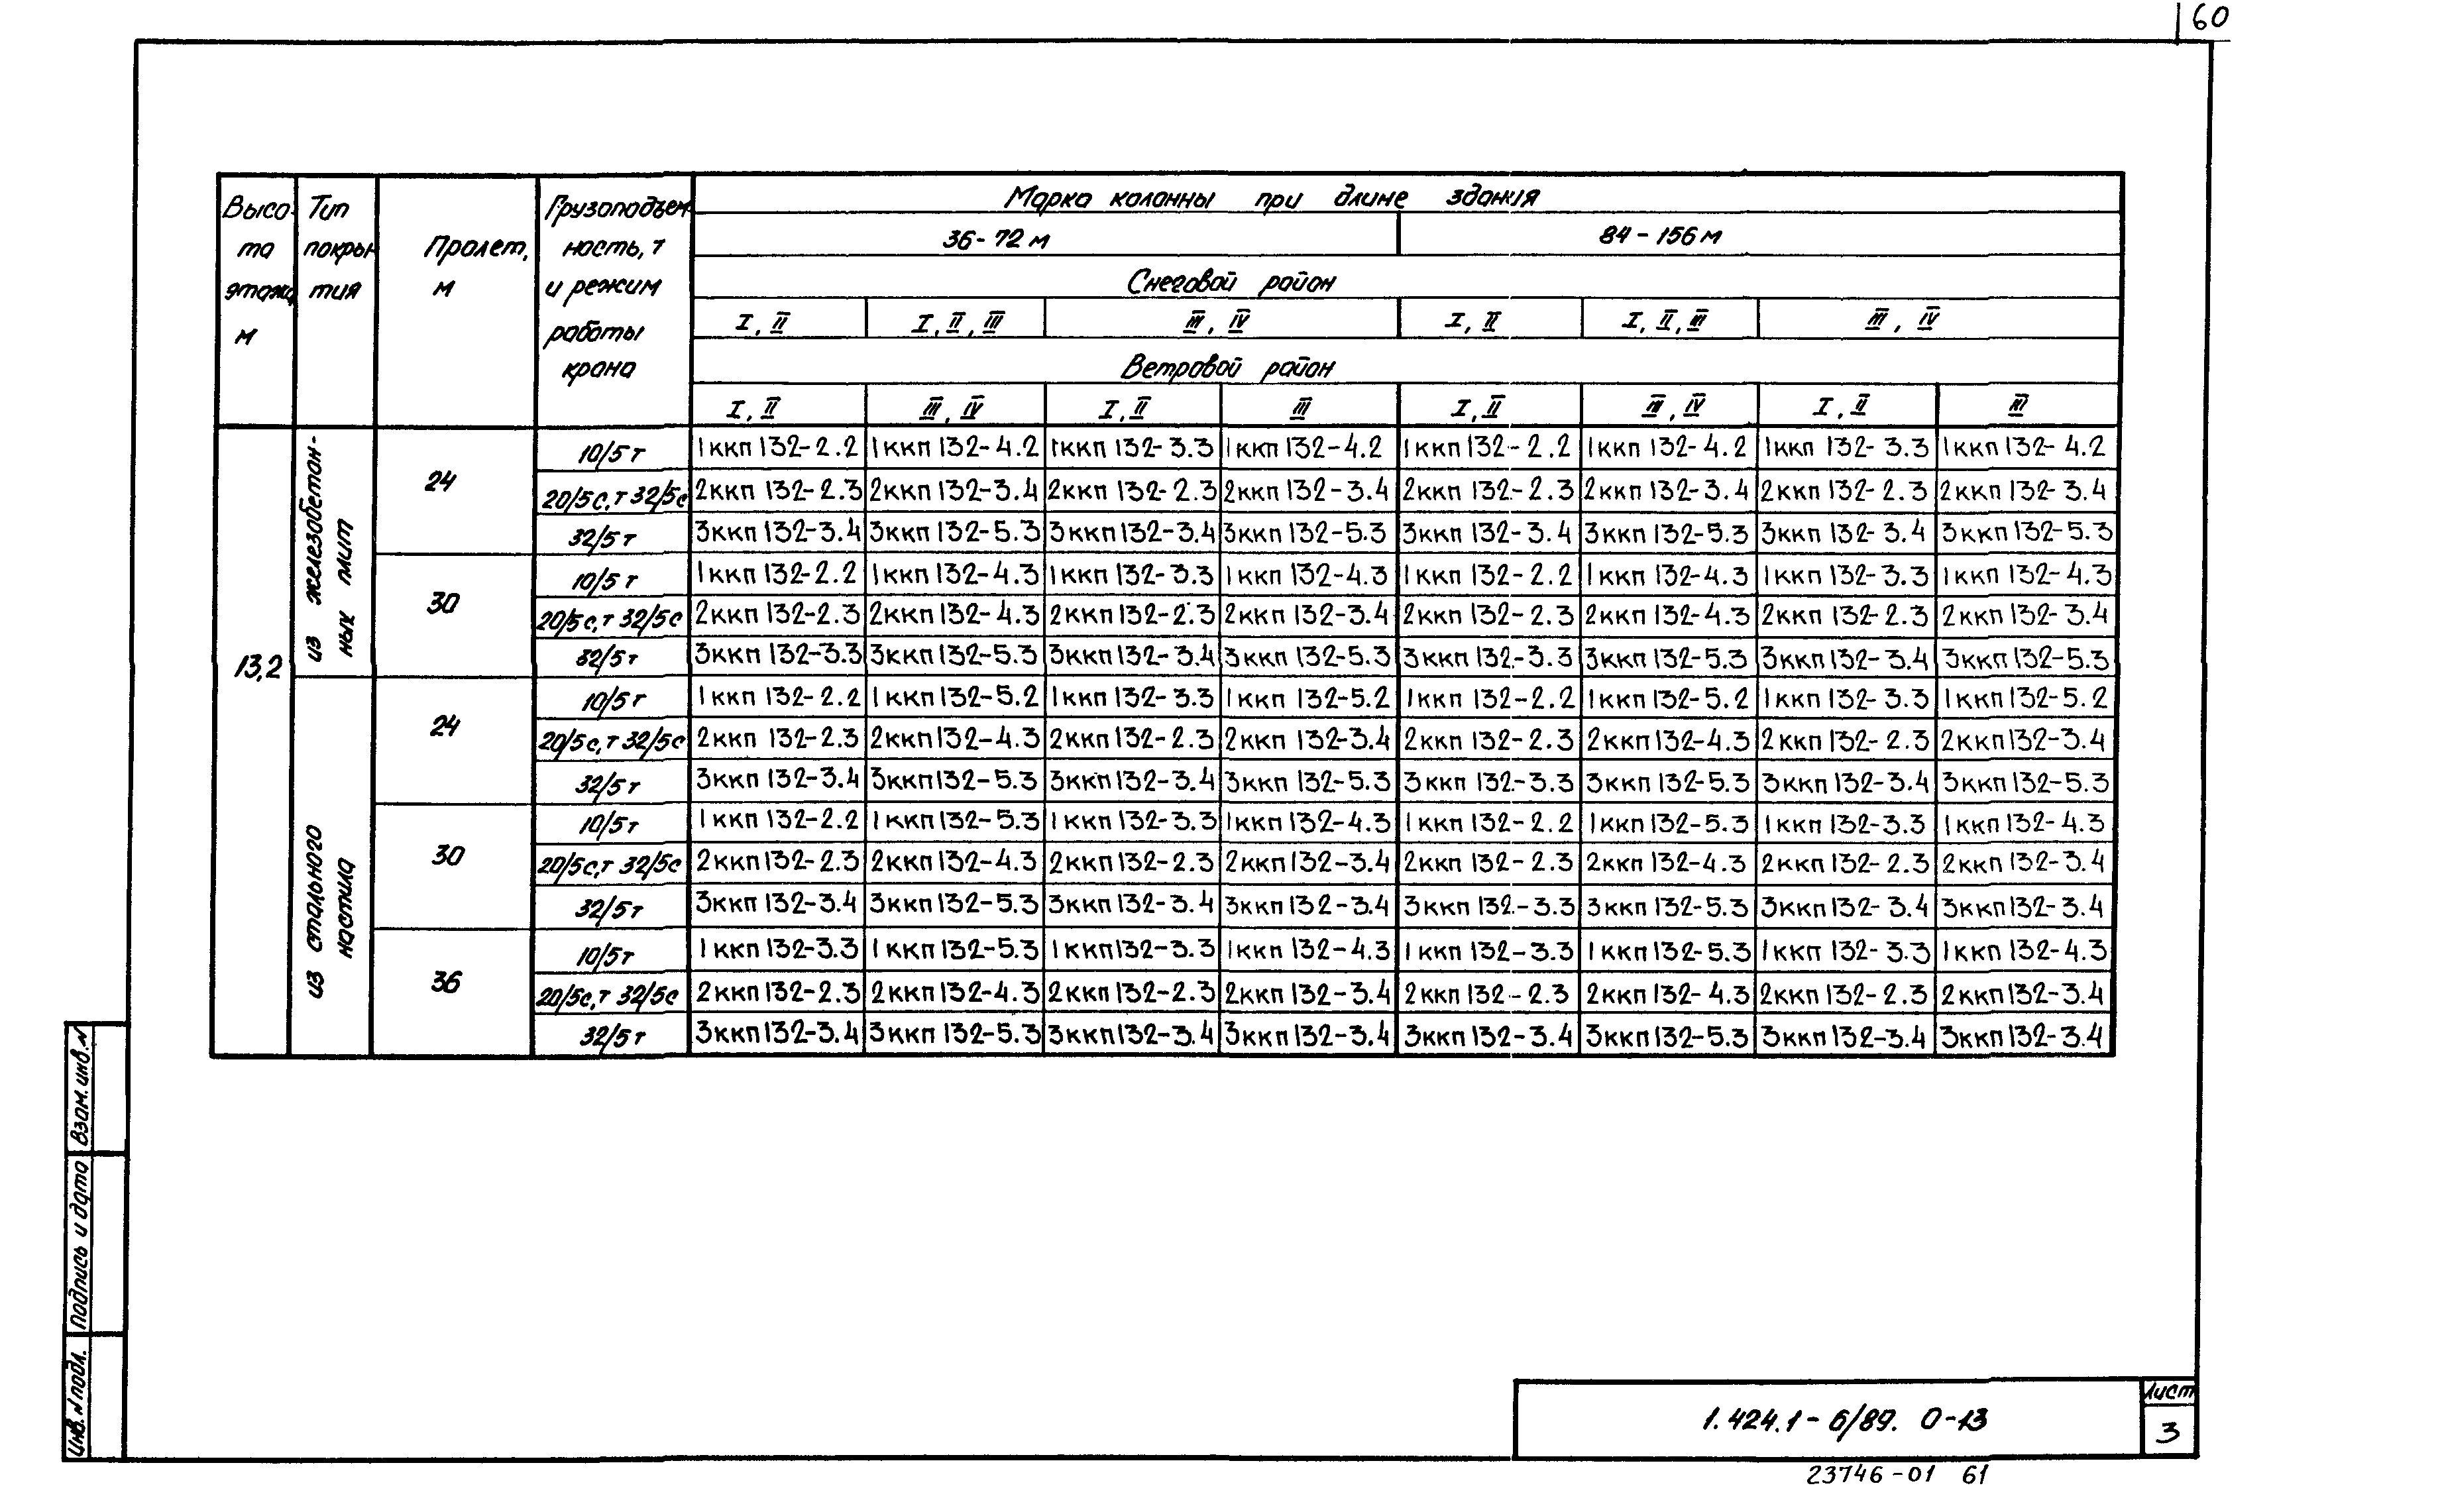 60
Марка колонны при длине здания
Высо- Тип Грузоподъем-
та покры- Пролет, ность, т
этажа тия м и режим
м работы
крана
36-72 м 84-156 м
Снеговой район
I, II I, II, III III, IV I, II I, II, III III, IV
Ветровой район
I, II III, IV I, II III I, II III, IV I, II III
13,2
из железобетон-
ных плит
24
10/5 т 1ккп 132-2.2 1ккп 132-4.2 1ккп 132-3.3 1ккп 132-4.2 1ккп 132-2.2 1ккп 132-4.2 1ккп 132-3.3 1ккп 132-4.2
20/5с,т 32/5с 2ккп 132-2.3 2ккп 132-3.4 2ккп 132-2.3 2ккп 132-3.4 2ккп 132-2.3 2ккп 132-3.4 2ккп 132-2.3 2ккп 132-3.4
32/5 т 3ккп 132-3.4 3ккп 132-5.3 3ккп 132-3.4 3ккп 132-5.3 3ккп 132-3.4 3ккп 132-5.3 3ккп 132-3.4 3ккп 132-5.3
30
10/5 т 1ккп 132-2.2 1ккп 132-4.3 1ккп 132-3.3 1ккп 132-4.3 1ккп 132-2.2 1ккп 132-4.3 1ккп 132-3.3 1ккп 132-4.3
20/5с,т 32/5с 2ккп 132-2.3 2ккп 132-4.3 2ккп 132-2.3 2ккп 132-3.4 2ккп 132-2.3 2ккп 132-4.3 2ккп 132-2.3 2ккп 132-3.4
32/5 т 3ккп 132-3.3 3ккп 132-5.3 3ккп 132-3.4 3ккп 132-5.3 3ккп 132-3.3 3ккп 132-5.3 3ккп 132-3.4 3ккп 132-5.3
из стального
настила
24
10/5 т 1ккп 132-2.2 1ккп 132-5.2 1ккп 132-3.3 1ккп 132-5.2 1ккп 132-2.2 1ккп 132-5.2 1ккп 132-3.3 1ккп 132-5.2
20/5с,т 32/5с 2ккп 132-2.3 2ккп 132-4.3 2ккп 132-2.3 2ккп 132-3.4 2ккп 132-2.3 2ккп 132-4.3 2ккп 132-2.3 2ккп 132-3.4
32/5 т 3ккп 132-3.4 3ккп 132-5.3 3ккп 132-3.4 3ккп 132-5.3 3ккп 132-3.3 3ккп 132-5.3 3ккп 132-3.4 3ккп 132-5.3
30
10/5 т 1ккп 132-2.2 1ккп 132-5.3 1ккп 132-3.3 1ккп 132-4.3 1ккп 132-2.2 1ккп 132-5.3 1ккп 132-3.3 1ккп 132-4.3
20/5с,т 32/5с 2ккп 132-2.3 2ккп 132-4.3 2ккп 132-2.3 2ккп 132-3.4 2ккп 132-2.3 2ккп 132-4.3 2ккп 132-2.3 2ккп 132-3.4
32/5 т 3ккп 132-3.4 3ккп 132-5.3 3ккп 132-3.4 3ккп 132-3.4 3ккп 132-3.3 3ккп 132-5.3 3ккп 132-3.4 3ккп 132-3.4
36
10/5 т 1ккп 132-3.3 1ккп 132-5.3 1ккп 132-3.3 1ккп 132-4.3 1ккп 132-3.3 1ккп 132-5.3 1ккп 132-3.3 1ккп 132-4.3
20/5с,т 32/5с 2ккп 132-2.3 2ккп 132-4.3 2ккп 132-2.3 2ккп 132-3.4 2ккп 132-2.3 2ккп 132-4.3 2ккп 132-2.3 2ккп 132-3.4
32/5 т 3ккп 132-3.4 3ккп 132-5.3 3ккп 132-3.4 3ккп 132-3.4 3ккп 132-3.4 3ккп 132-5.3 3ккп 132-3.4 3ккп 132-3.4
Взам. инв. N
Подпись и дата
Инв. N подл.
1.424.1-6/89. 0-13
Лист
3
23746-01 61